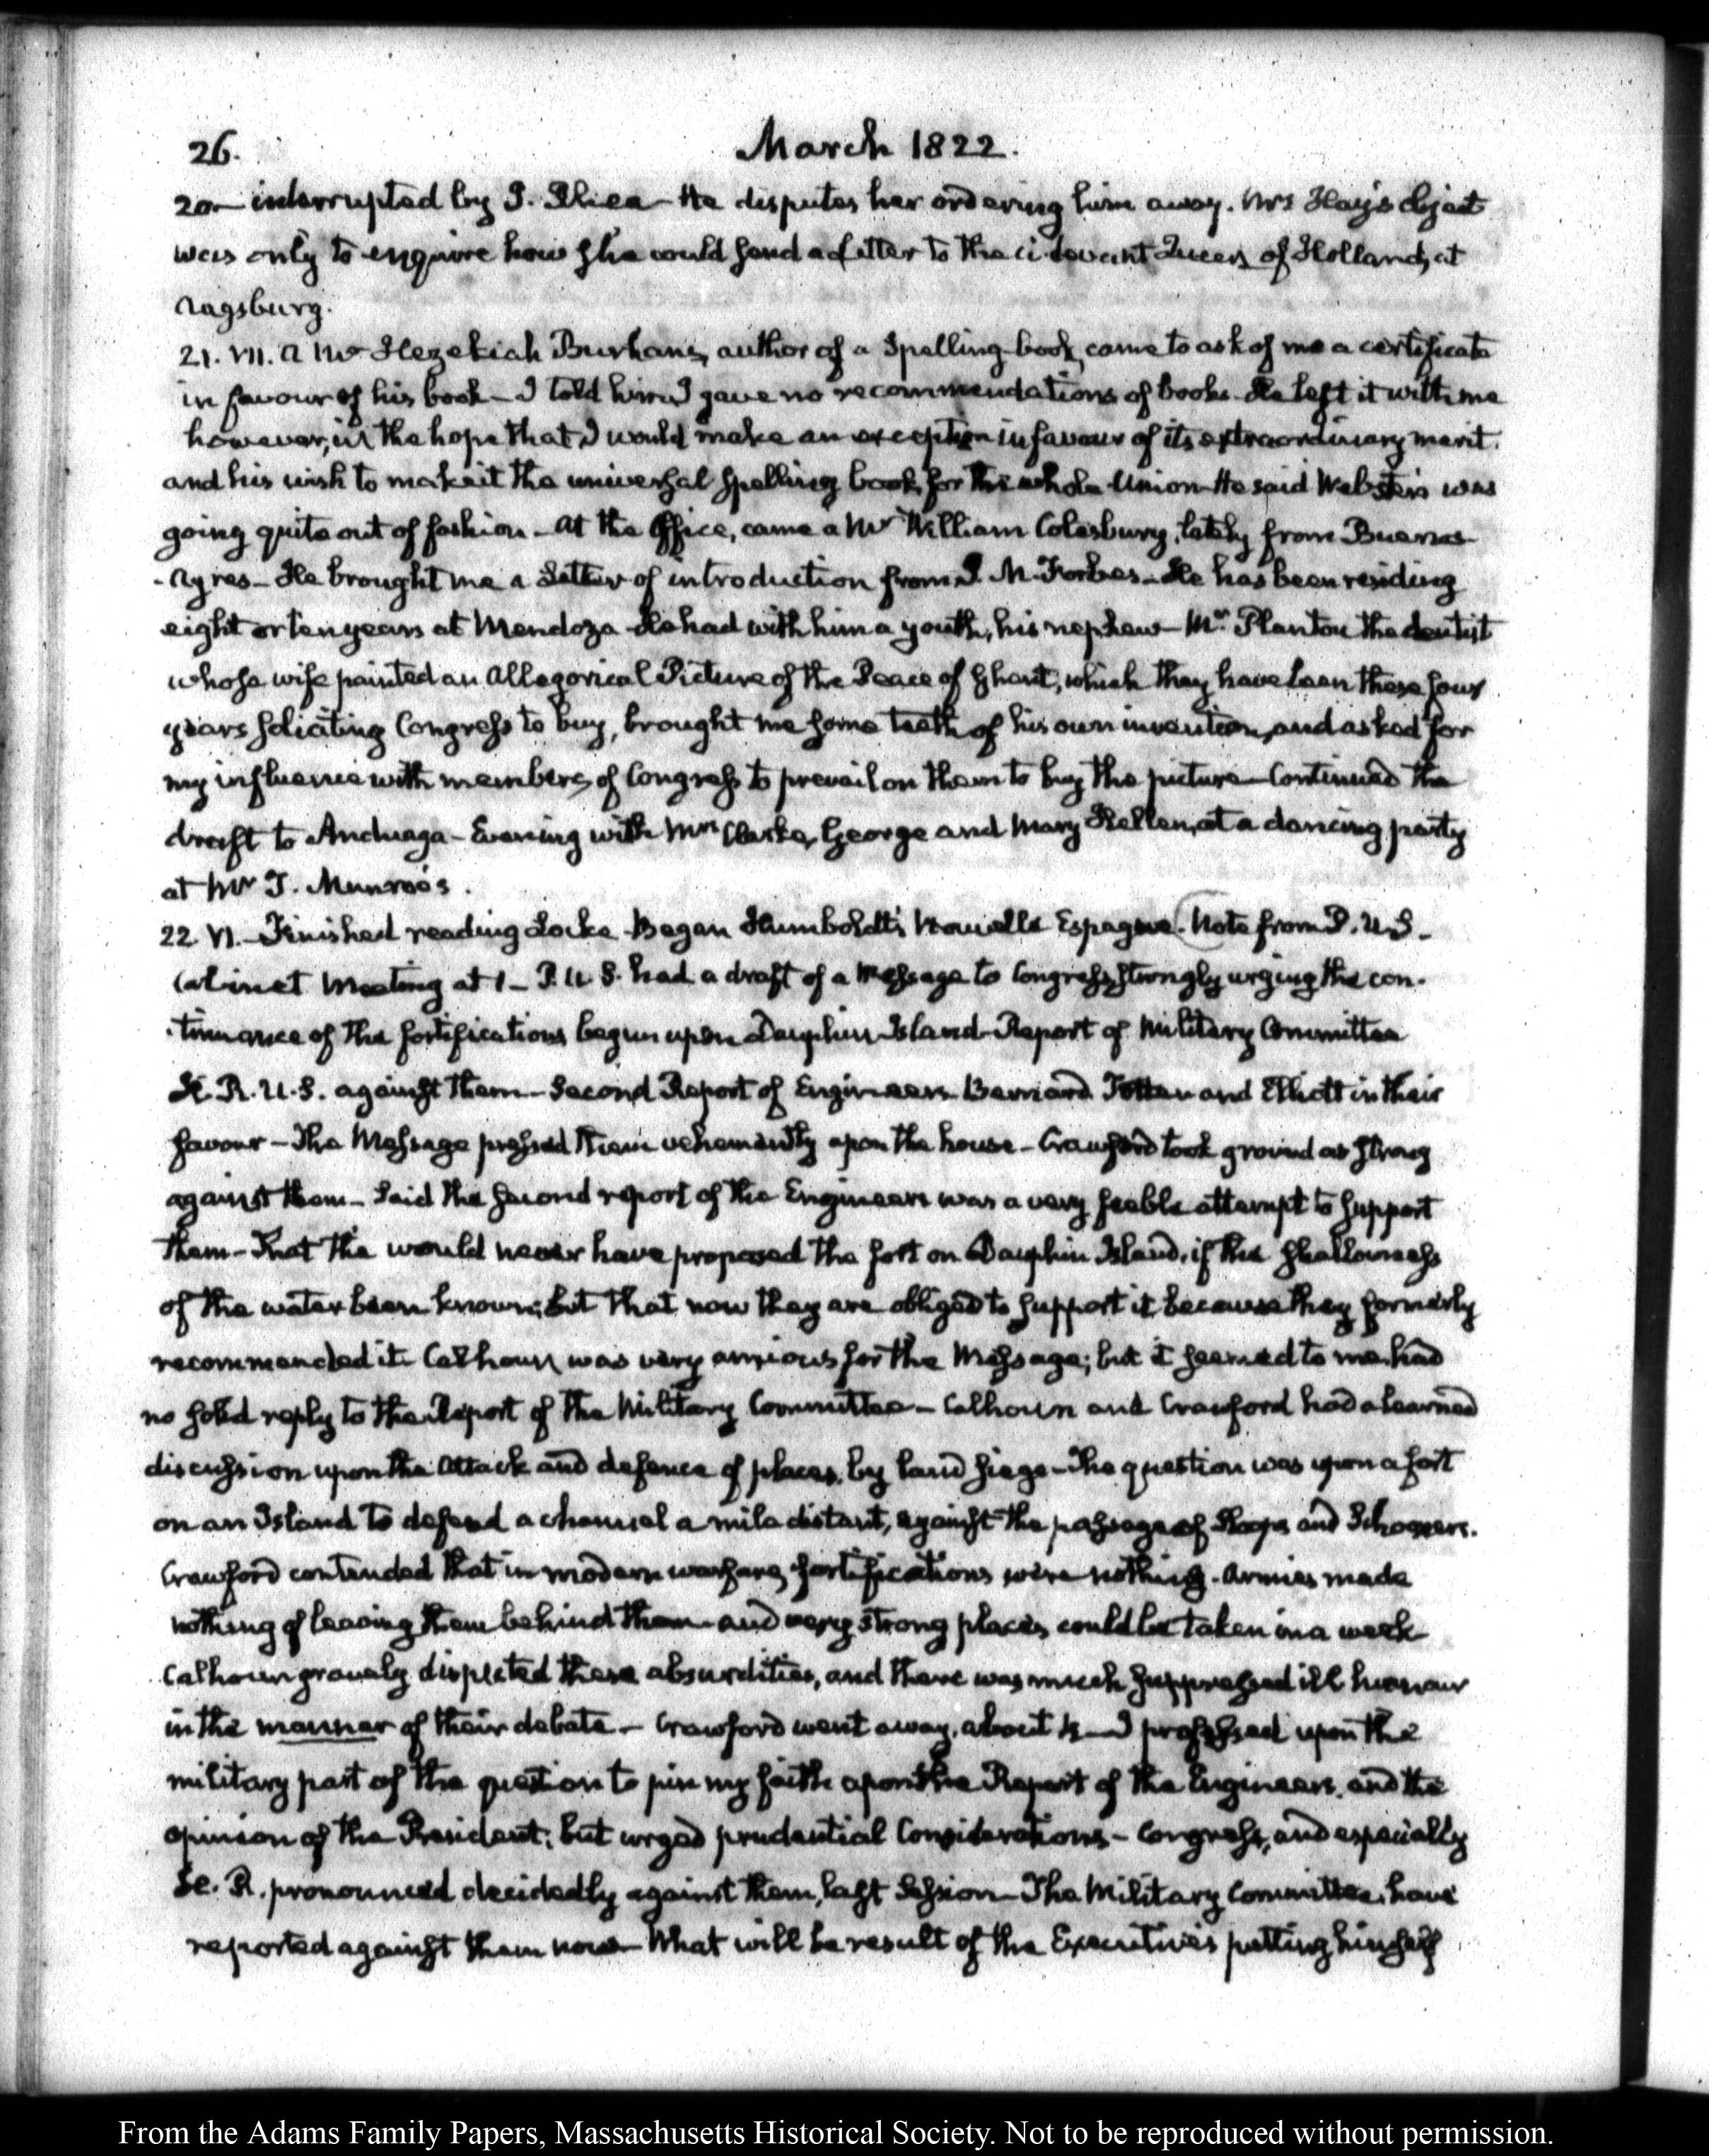 26. March 1822.
20— interrupted by J. Rhea — He disputes her ordering him away. Mrs Hay's object
was only to enquire how she could send a Letter to the ci-devant Queen of Holland, at
Augsburg.
21. VII. A Mr Hezekiah Burhans, author of a Spelling-book, came to ask of me a certificate
in favour of his book — I told him I gave no recommendations of books. He left it with me
however, in the hope that I would make an exception in favour of its extraordinary merit.
and his wish to make it the universal spelling book for the whole Union — He said Webster's was
going quite out of fashion — At the Office, came a Mr William Colesbury, lately from Buenos-
-Ayres — He brought me a Letter of introduction from J. M. Forbes — He has been residing
eight or ten years at Mendoza — He had with him a youth, his nephew — Mr. Plantou the dentist
whose wife painted an Allegorical Picture of the Peace of Ghent, which they have been these four
years soliciting Congress to buy, brought me some teeth of his own invention, and asked for
my influence with members of Congress to prevail on them to buy the picture — Continued the
draft to Anduaga — Evening with Mrs Clarke, George and Mary Hellen, at a dancing party
at Mr T. Munroe's.
22. VI. — Finished reading Locke. Began Humboldt's Nouvelle Espagne. Note from P. U. S. —
Cabinet Meeting at 1 — P. U S. had a draft of a Message to Congress, strongly urging the con-
-tinuance of the fortifications begun upon Dauphin Island — Report of Military Committee
H. R. U. S. against them — Second Report of Engineers Bernard Totten and Elliott in their
favour — The Message pressed them vehemently upon the house — Crawford took ground as strong
against them — Said the second report of the Engineers was a very feeble attempt to support
them — That the would never have proposed the fort on Dauphin Island, if the shallowness
of the water been known; but that now they are obliged to support it because they formerly
recommended it. Calhoun was very anxious for the Message; but it seemed to me had
no solid reply to the Report of the Military Committee — Calhoun and Crawford had a learned
discussion upon the attack and defence of places, by land siege — The question was upon a fort
on an Island to defend a channel a mile distant, against the passage of Sloops and Schooners.
Crawford contended that in modern warfare, fortifications were nothing. Armies made
nothing of leaving them behind them — and very strong places could be taken in a week
Calhoun gravely disputed these absurdities, and there was much suppressed ill humour
in the manner of their debate — Crawford went away, about 4 — I professed upon the
military part of the question to pin my faith upon the Report of the Engineers, and the
opinion of the President; but urged prudential Considerations — Congress, and especially
H. R. pronounced decidedly against them, last Session — The Military Committee, have
reported against them now — What will be result of the Executive's putting himself
From the Adams Family Papers, Massachusetts Historical Society. Not to be reproduced without permission.